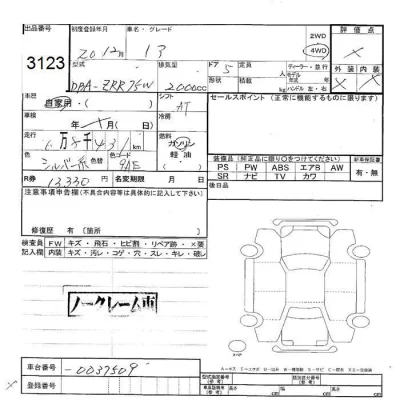 出品番号 初度登録年月 車名・グレード 評価点
3123 20年12月 13 2WD 4WD
型式 排気量 ドア 定員 ディーラー・並行 外装 内装
DBA-ZRR75W 2000cc 5 形状 積載 kg モデル年式 ハンドル 左・右 × ×
車歴 自家用・( ) シフト AT セールスポイント(正常に機能するものに限ります)
車検 年 月( 日) 冷房
走行 万 千 431 km 燃料 ガソリン 軽油
色 シルバー系 色替 色コード
R券 13,330 名変期限 月 日
装備品(純正品に限り○をつけてください) 新車保証書
PS PW ABS エアB AW 有・無
SR ナビ TV カワ
注意事項申告欄(不具合内容等は具体的に記入して下さい) 後日品
修復歴 有 〔箇所 〕
検査員記入欄 FW キズ・飛石・ヒビ割・リペア跡・×要
内装 キズ・汚レ・コゲ・穴・スレ・キレ・破レ
ノークレーム車
車台番号 -0037509
登録番号